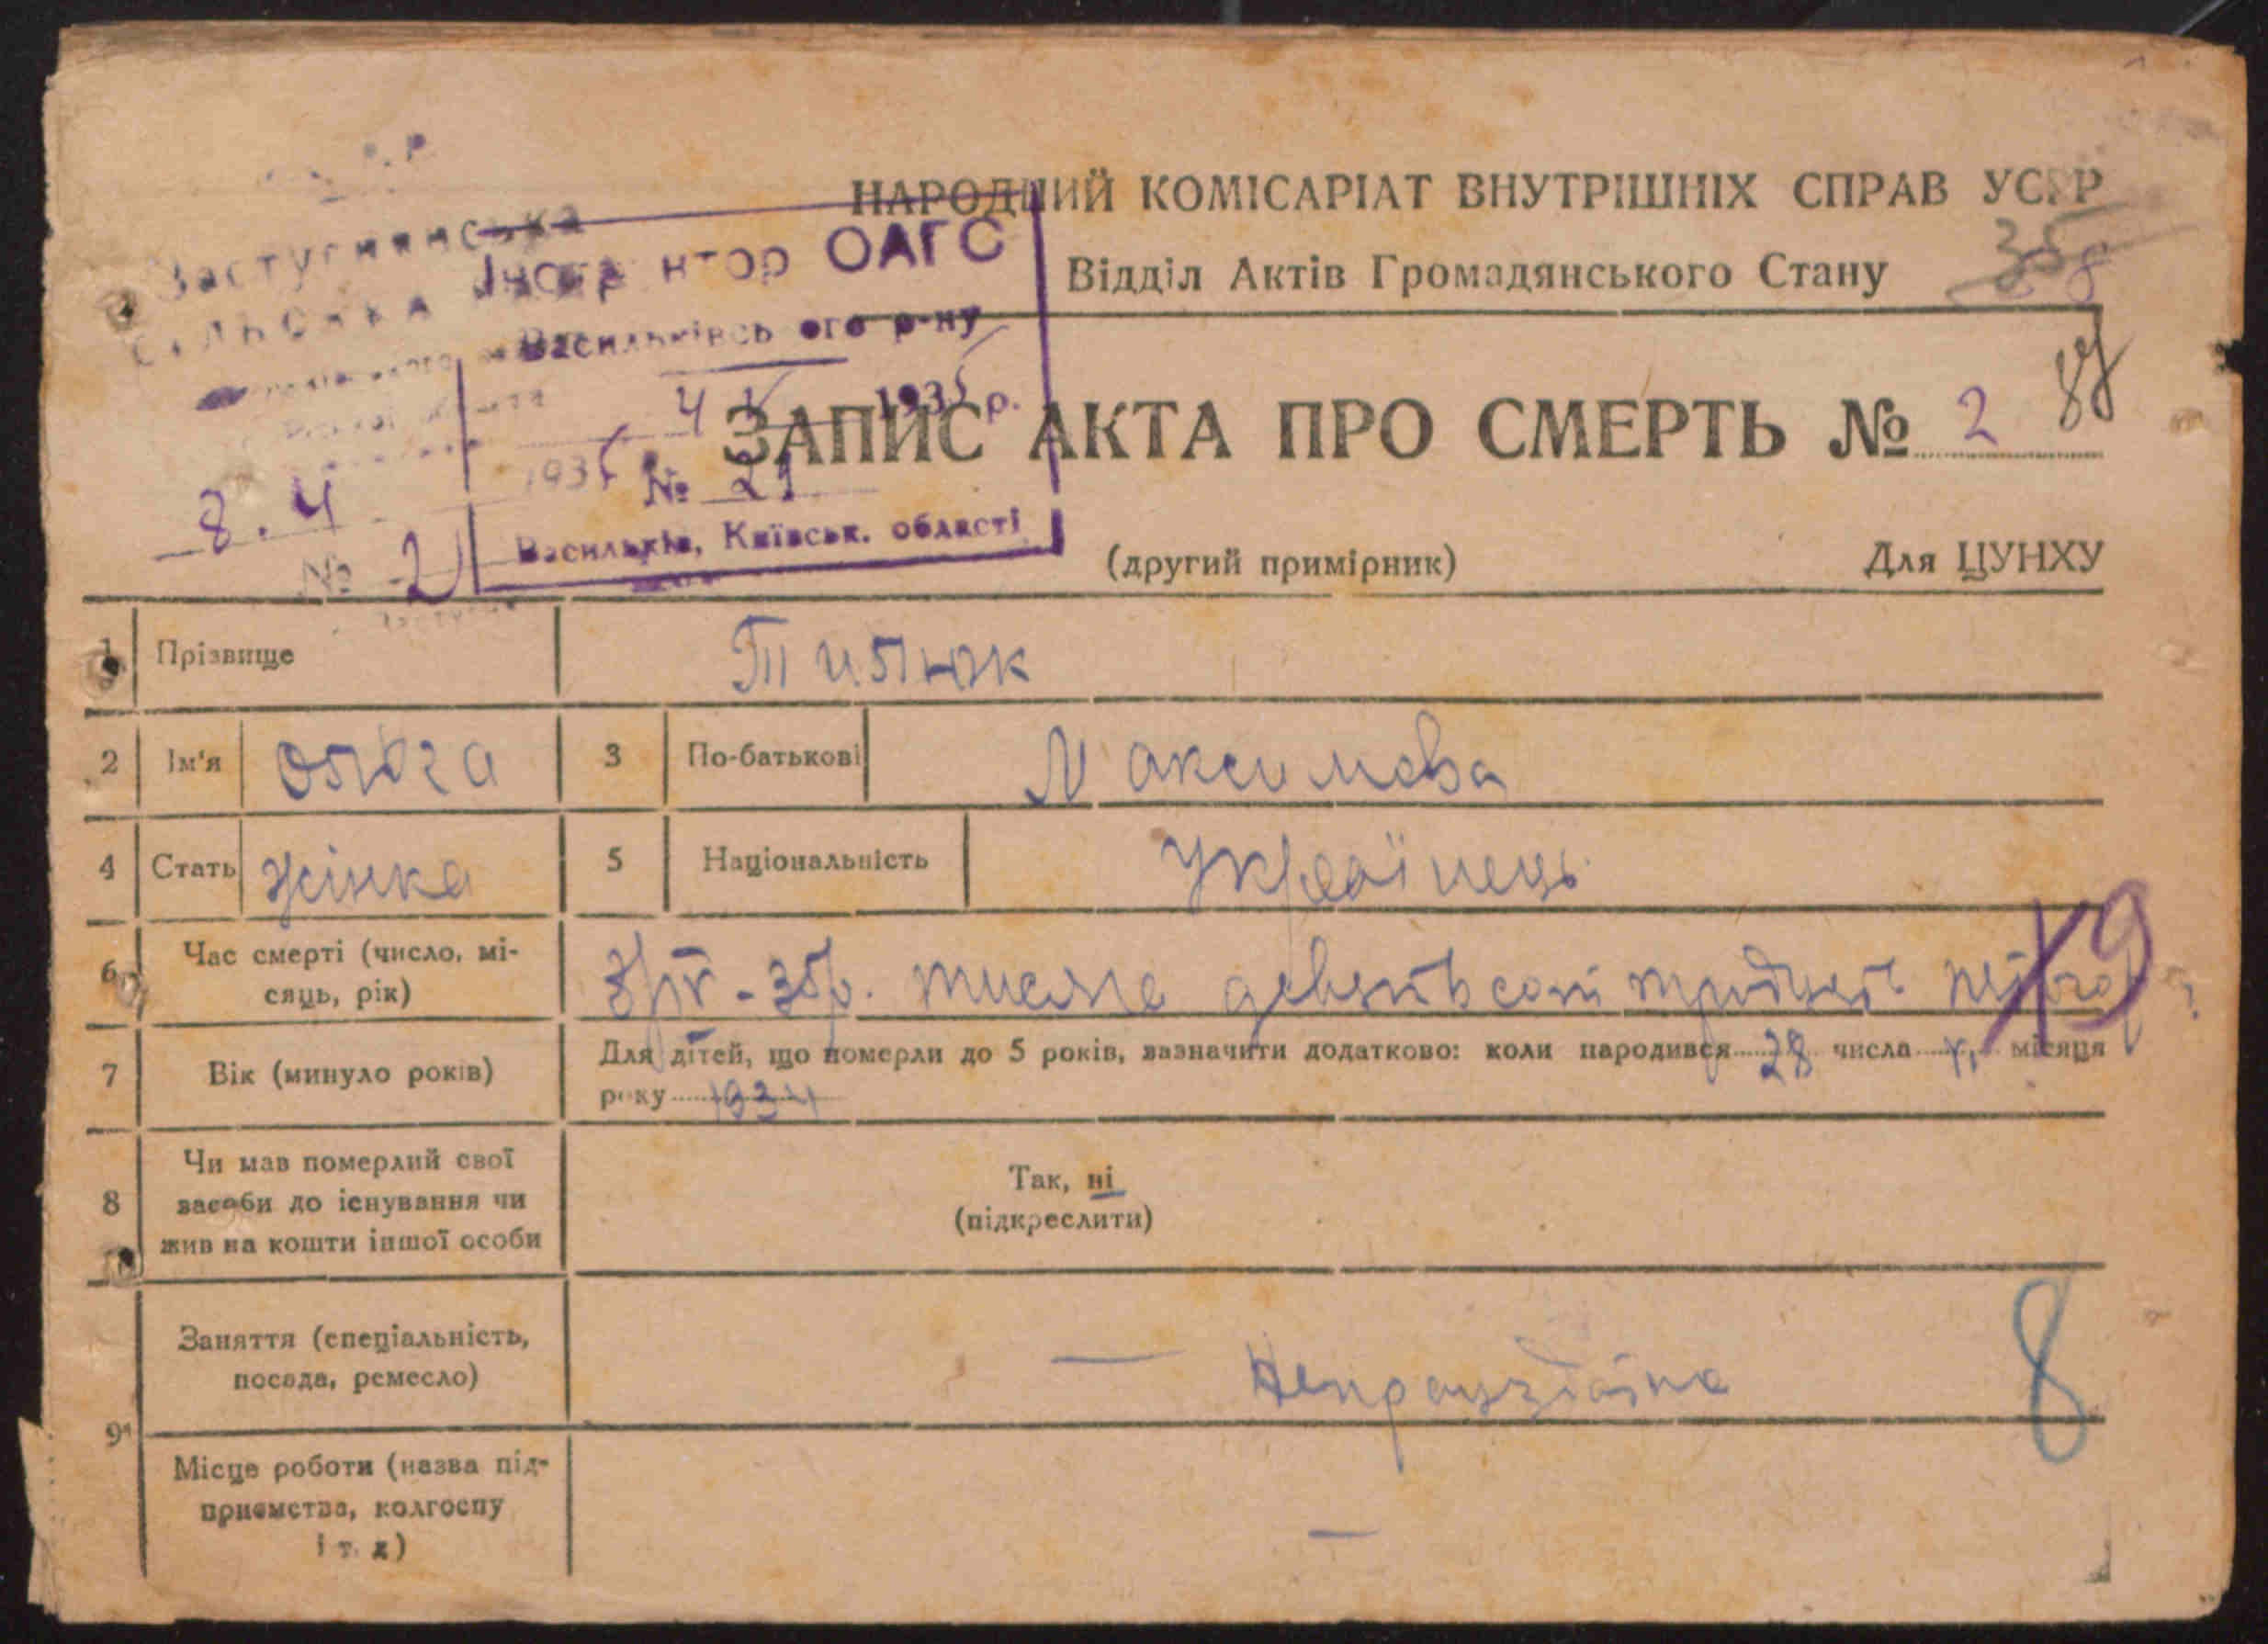 НАРОДНИЙ КОМІСАРІАТ ВНУТРІШНІХ СПРАВ УСРР
Відділ Актів Громадянського Стану
35
88
Застугнянська
сільська
Інспектор ОАГС
Васильківського р-ну
4 V 1935 р.
№ 21
Васильків, Київськ. області
193
8. 4
№ 2
ЗАПИС АКТА ПРО СМЕРТЬ № 2
(другий примірник) Для ЦУНХУ
1 Прізвище Типюк
2 Ім'я Ольга 3 По-батькові Максимова
4 Стать жінка 5 Національність Українець
6 Час смерті (число, мі-
сяць, рік)
8/IV - 35р. тисяча девятьсот тридцять
19
7 Вік (минуло років) Для дітей, що померли до 5 років, зазначити додатково: коли народився 28 числа місяця
року 1934
8 Чи мав померлий свої
засоби до існування чи
жив на кошти іншої особи
Так, ні
(підкреслити)
9 Заняття (спеціальність,
посада, ремесло)
— Непрацездатна
8
Місце роботи (назва під-
приємства, колгоспу
і т. д)
—